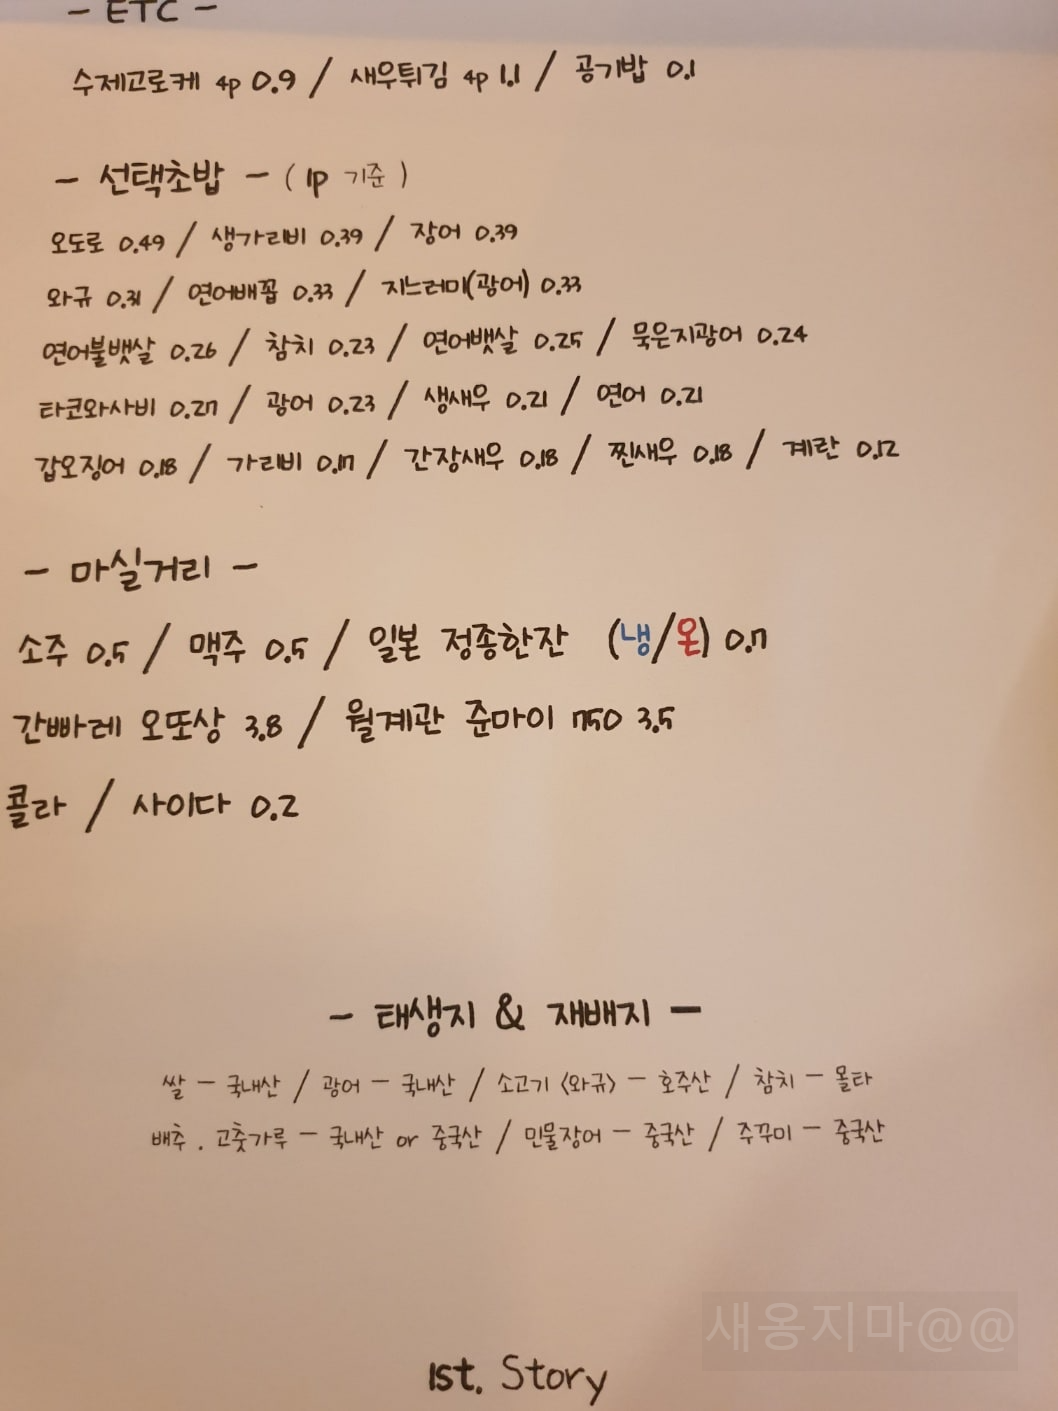 - ETC -
수제고로케 4p 0.9 / 새우튀김 4p 1.1 / 공기밥 0.1
- 선택초밥 - ( 1p 기준 )
오도로 0.49 / 생가리비 0.39 / 장어 0.39
와규 0.31 / 연어배꼽 0.33 / 지느러미(광어) 0.33
연어불뱃살 0.26 / 참치 0.23 / 연어뱃살 0.25 / 묵은지광어 0.24
타코와사비 0.27 / 광어 0.23 / 생새우 0.21 / 연어 0.21
갑오징어 0.18 / 가리비 0.17 / 간장새우 0.18 / 찐새우 0.18 / 계란 0.12
- 마실거리 -
소주 0.5 / 맥주 0.5 / 일본 정종한잔 (냉/온) 0.7
간빠레 오또상 3.8 / 월계관 준마이 750 3.5
콜라 / 사이다 0.2
- 태생지 & 재배지 -
쌀 - 국내산 / 광어 - 국내산 / 소고기 <와규> - 호주산 / 참치 - 몰타
배추 . 고춧가루 - 국내산 or 중국산 / 민물장어 - 중국산 / 주꾸미 - 중국산
새옹지마@@
1st. Story